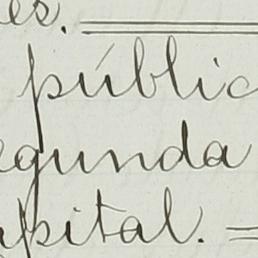 es.
públic
egunda
pital.